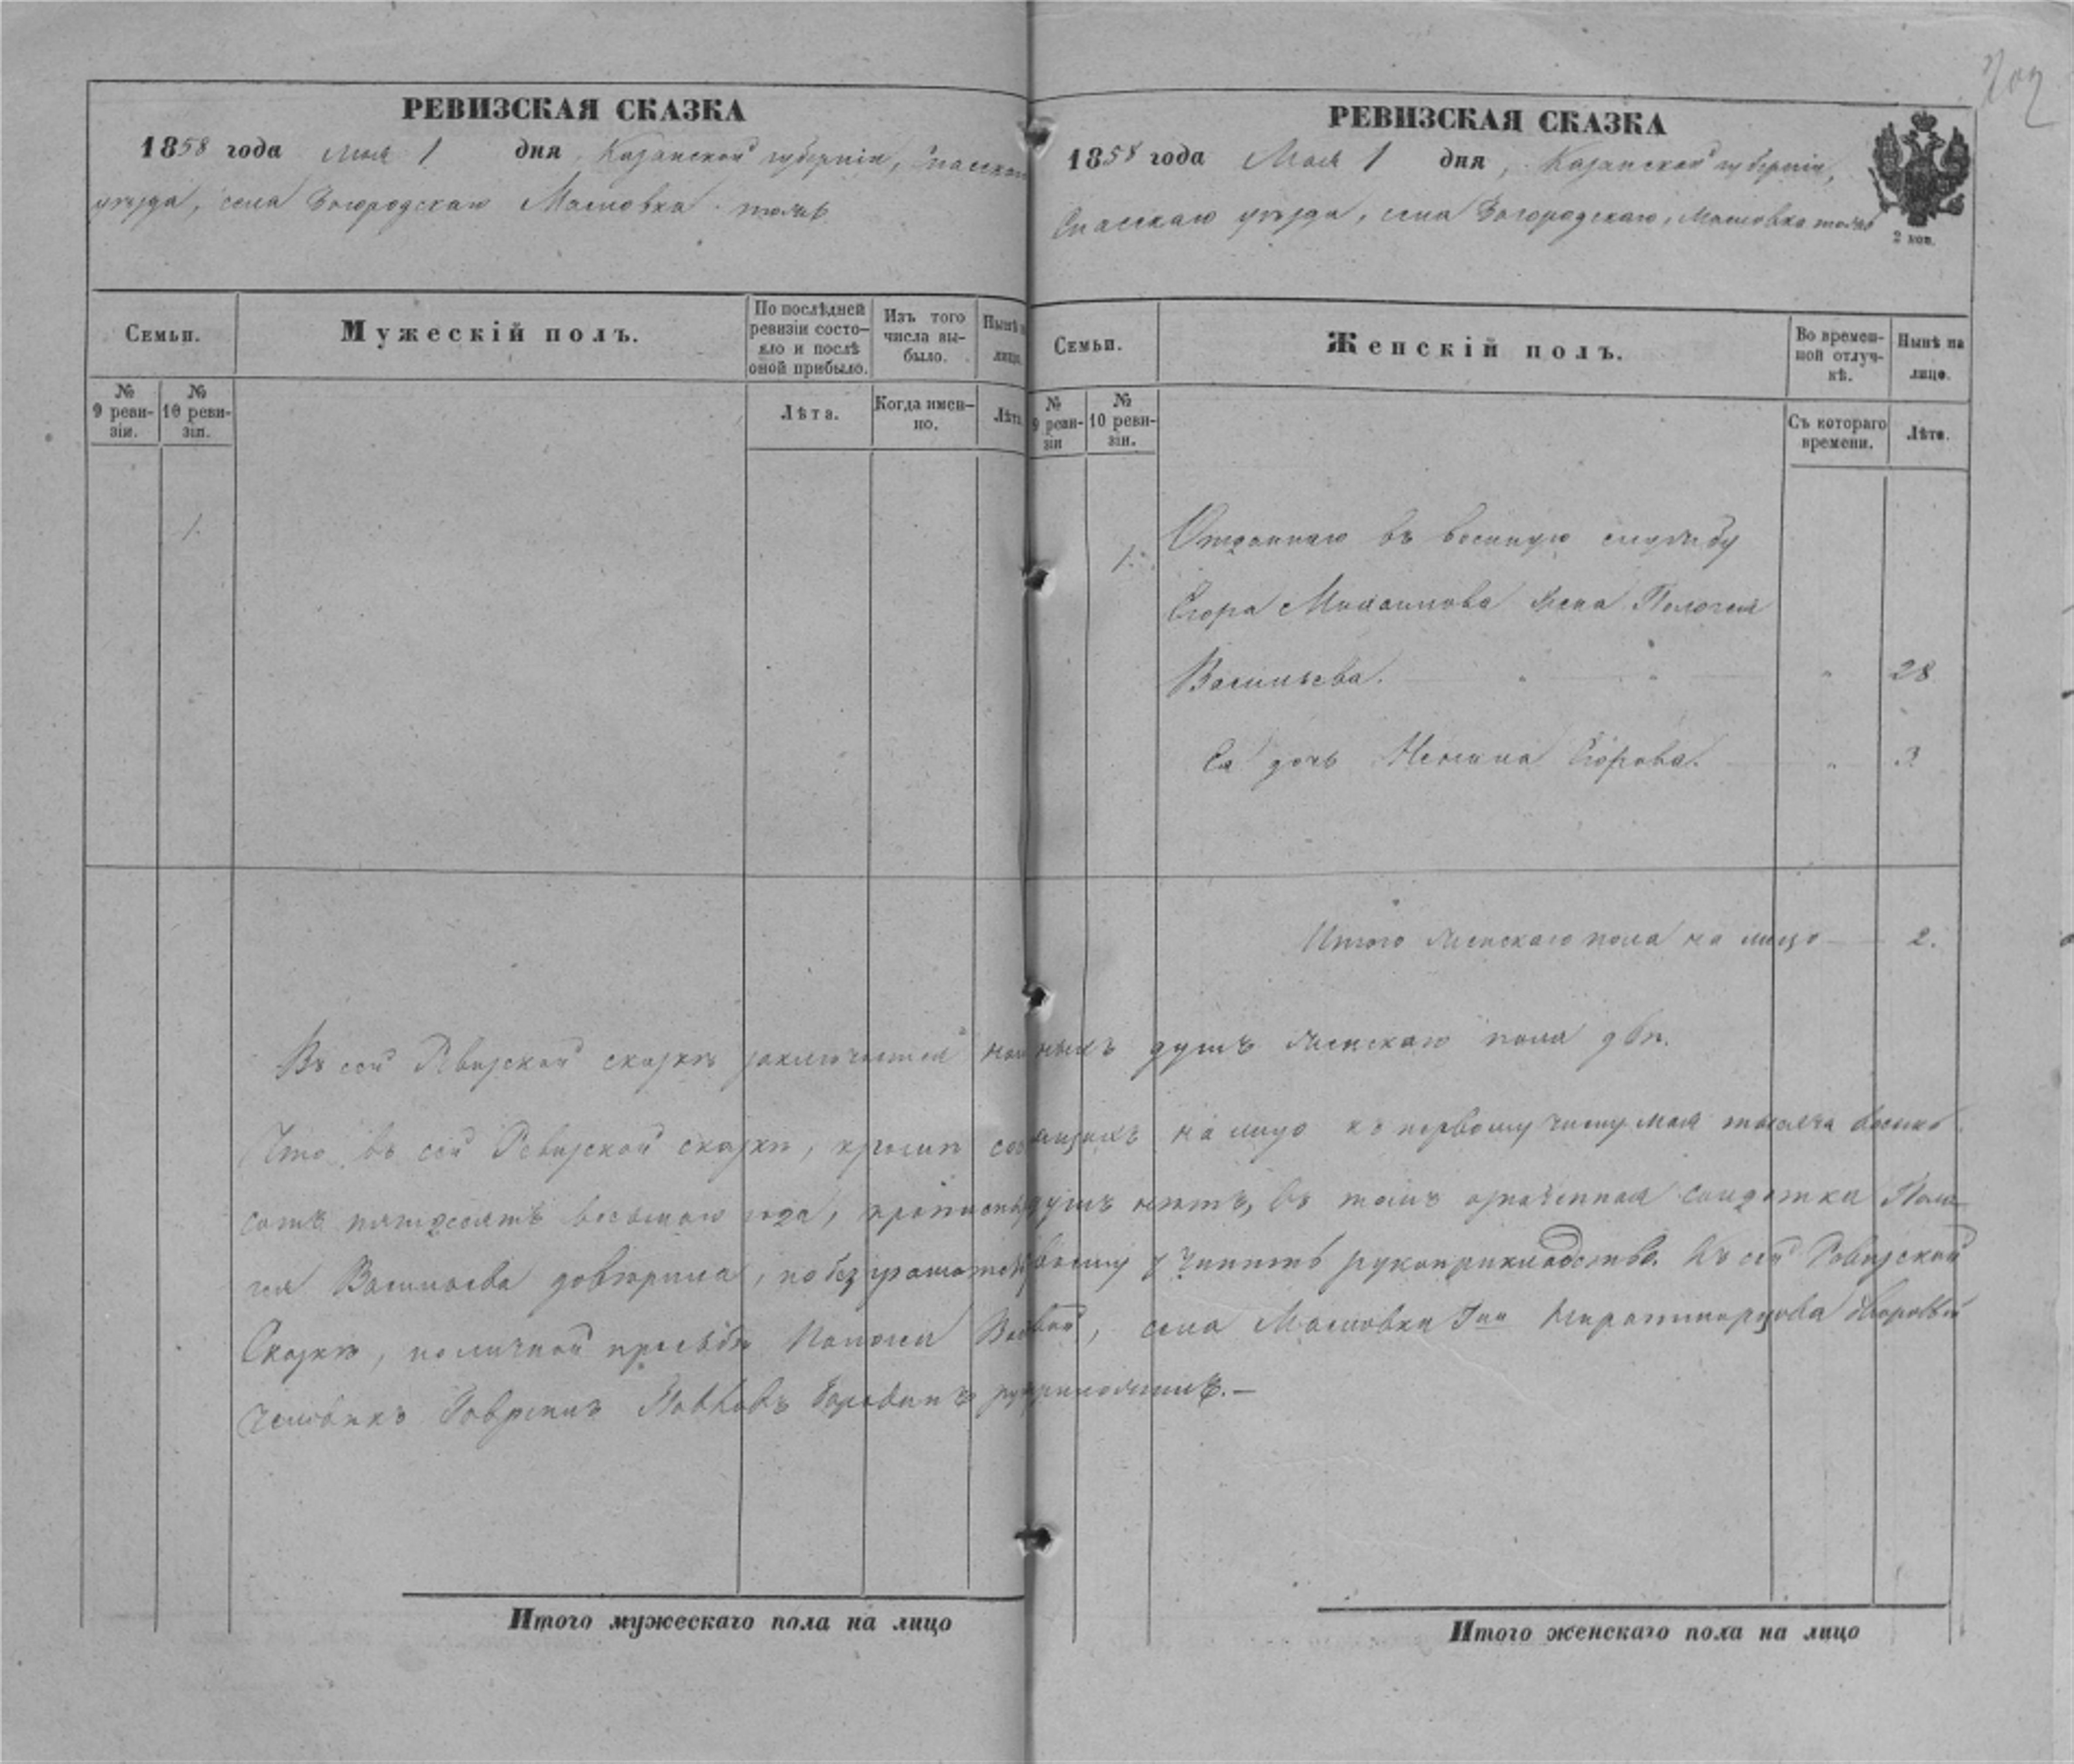 РЕВИЗСКАЯ СКАЗКА
1858 года мая 1 дня, Казанской губерніи, Спасскаго
уѣзда, села Богородскаго Масловка тожъ
Семьи.
Мужескій полъ.
По послѣдней ревизіи состояло и послѣ оной прибыло.
Изъ того числа выбыло.
Нынѣ на лицо.
№ 9 ревизіи.
№ 10 ревизіи.
Лѣта.
Когда именно.
Лѣта
1.
РЕВИЗСКАЯ СКАЗКА
1858 года Мая 1 дня, Казанской губерніи,
Спасскаго уѣзда, села Богородскаго, Масловка тожъ
2 коп.
Семьи.
Женскій полъ.
Во временной отлучкѣ.
Нынѣ на лицо.
№ 9 ревизіи
№ 10 ревизіи.
Съ котораго времени.
Лѣта.
1. Отданнаго въ военную службу
Егора Михаилова жена Пелагея
Васильева. " 28
Ея дочь Егорова. " 3.
Итого женскаго пола на лицо 2.
Въ сей Ревизской сказкѣ заключается наличныхъ душъ женскаго пола двѣ.
Что въ сей Ревизской сказкѣ, кромѣ состоящихъ на лицо къ первому числу мая тысяча восемь
сотъ пятдесятъ восьмаго года, прописныхъ душъ нѣтъ, въ томъ означенная солдатка Пела-
гея Васильева довѣрила, по безграмотству своему учинить рукоприкладство. Къ сей Ревизской
Сказкѣ, по личной прозьбѣ села Масловки дворовый
человѣкъ руку приложилъ.—
Итого мужескаго пола на лицо
Итого женскаго пола на лицо